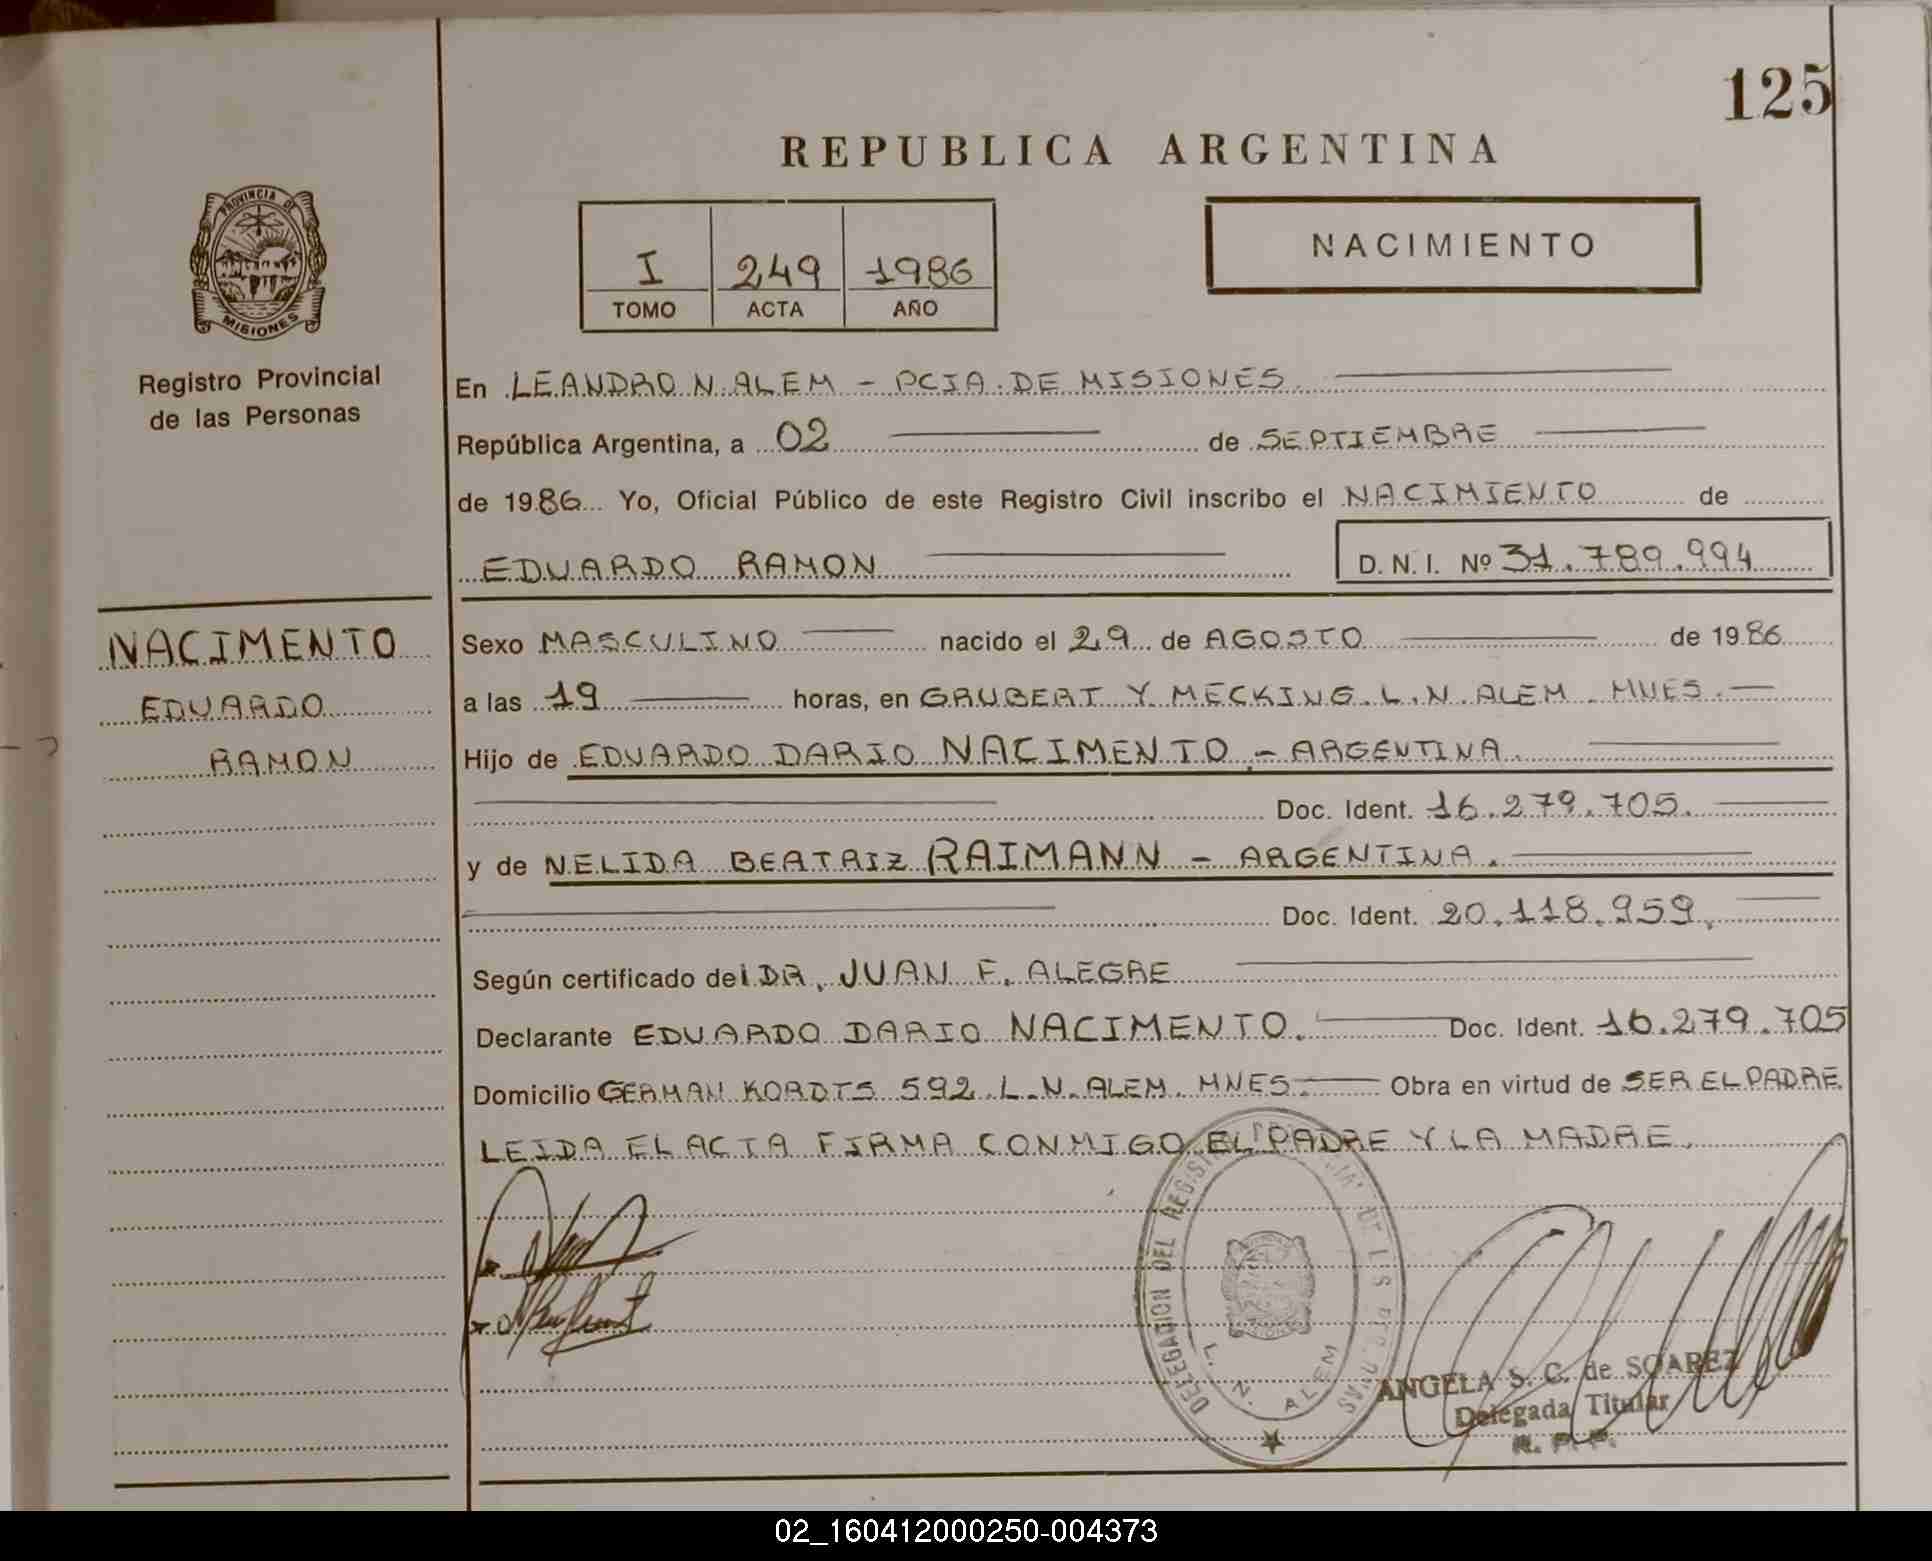 125
REPUBLICA ARGENTINA
PROVINCIA DE
MISIONES
Registro Provincial
de las Personas
I 249 1986
TOMO ACTA AÑO
NACIMIENTO
En LEANDRO N. ALEM - PCIA. DE MISIONES.
República Argentina, a 02 de SEPTIEMBRE
de 1986 Yo, Oficial Público de este Registro Civil inscribo el NACIMIENTO de
EDUARDO RAMON D. N. I. Nº 31.789.994
NACIMENTO
EDUARDO
RAMON
Sexo MASCULINO nacido el 29 de AGOSTO de 1986
a las 19 horas, en GRUBERT Y MECKING. L.N. ALEM. MNES.
Hijo de EDUARDO DARIO NACIMENTO - ARGENTINA.
Doc. Ident. 16.279.705.
y de NELIDA BEATRIZ RAIMANN - ARGENTINA.
Doc. Ident. 20.118.959.
Según certificado del DR. JUAN F. ALEGRE
Declarante EDUARDO DARIO NACIMENTO. Doc. Ident. 16.279.705
Domicilio GERMAN KORDTS 592. L.N. ALEM. MNES. Obra en virtud de SER EL PADRE.
LEIDA EL ACTA FIRMA CONMIGO EL PADRE Y LA MADRE.
DELEGACION DEL REGISTRO
L. N. ALEM
ANGELA S. C. de SOAREZ
Delegada Titular
R. P. P.
02_160412000250-004373